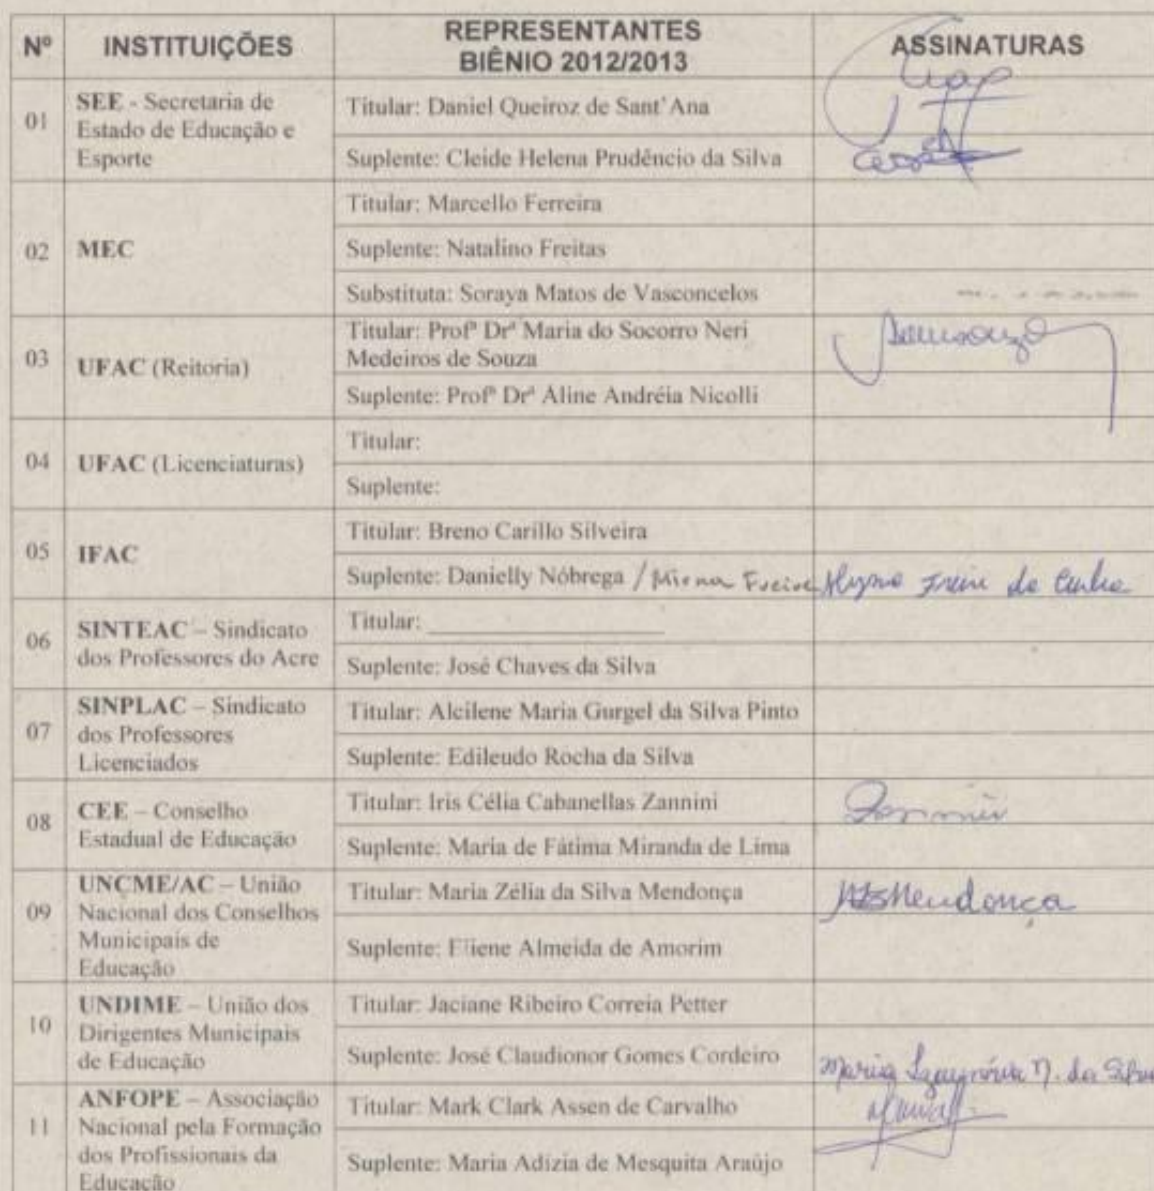 Nº INSTITUIÇÕES REPRESENTANTES BIÊNIO 2012/2013 ASSINATURAS
01
SEE - Secretaria de
Estado de Educação e
Esporte
Titular: Daniel Queiroz de Sant'Ana
Suplente: Cleide Helena Prudêncio da Silva
02
MEC
Titular: Marcello Ferreira
Suplente: Natalino Freitas
Substituta: Soraya Matos de Vasconcelos
03
UFAC (Reitoria)
Titular: Profª Drª Maria do Socorro Neri
Medeiros de Souza
Suplente: Profª Drª Aline Andréia Nicolli
04
UFAC (Licenciaturas)
Titular:
Suplente:
05
IFAC
Titular: Breno Carillo Silveira
Suplente: Danielly Nóbrega / Mirna Freire Freire da Cunha
06
SINTEAC – Sindicato
dos Professores do Acre
Titular:
Suplente: José Chaves da Silva
07
SINPLAC – Sindicato
dos Professores
Licenciados
Titular: Alcilene Maria Gurgel da Silva Pinto
Suplente: Edileudo Rocha da Silva
08
CEE – Conselho
Estadual de Educação
Titular: Iris Célia Cabanellas Zannini
Suplente: Maria de Fátima Miranda de Lima
09
UNCME/AC – União
Nacional dos Conselhos
Municipais de
Educação
Titular: Maria Zélia da Silva Mendonça MZSMendonça
Suplente: Eliene Almeida de Amorim
10
UNDIME – União dos
Dirigentes Municipais
de Educação
Titular: Jaciane Ribeiro Correia Petter
Suplente: José Claudionor Gomes Cordeiro Maria N. da Silva
11
ANFOPE – Associação
Nacional pela Formação
dos Profissionais da
Educação
Titular: Mark Clark Assen de Carvalho
Suplente: Maria Adízia de Mesquita Araújo